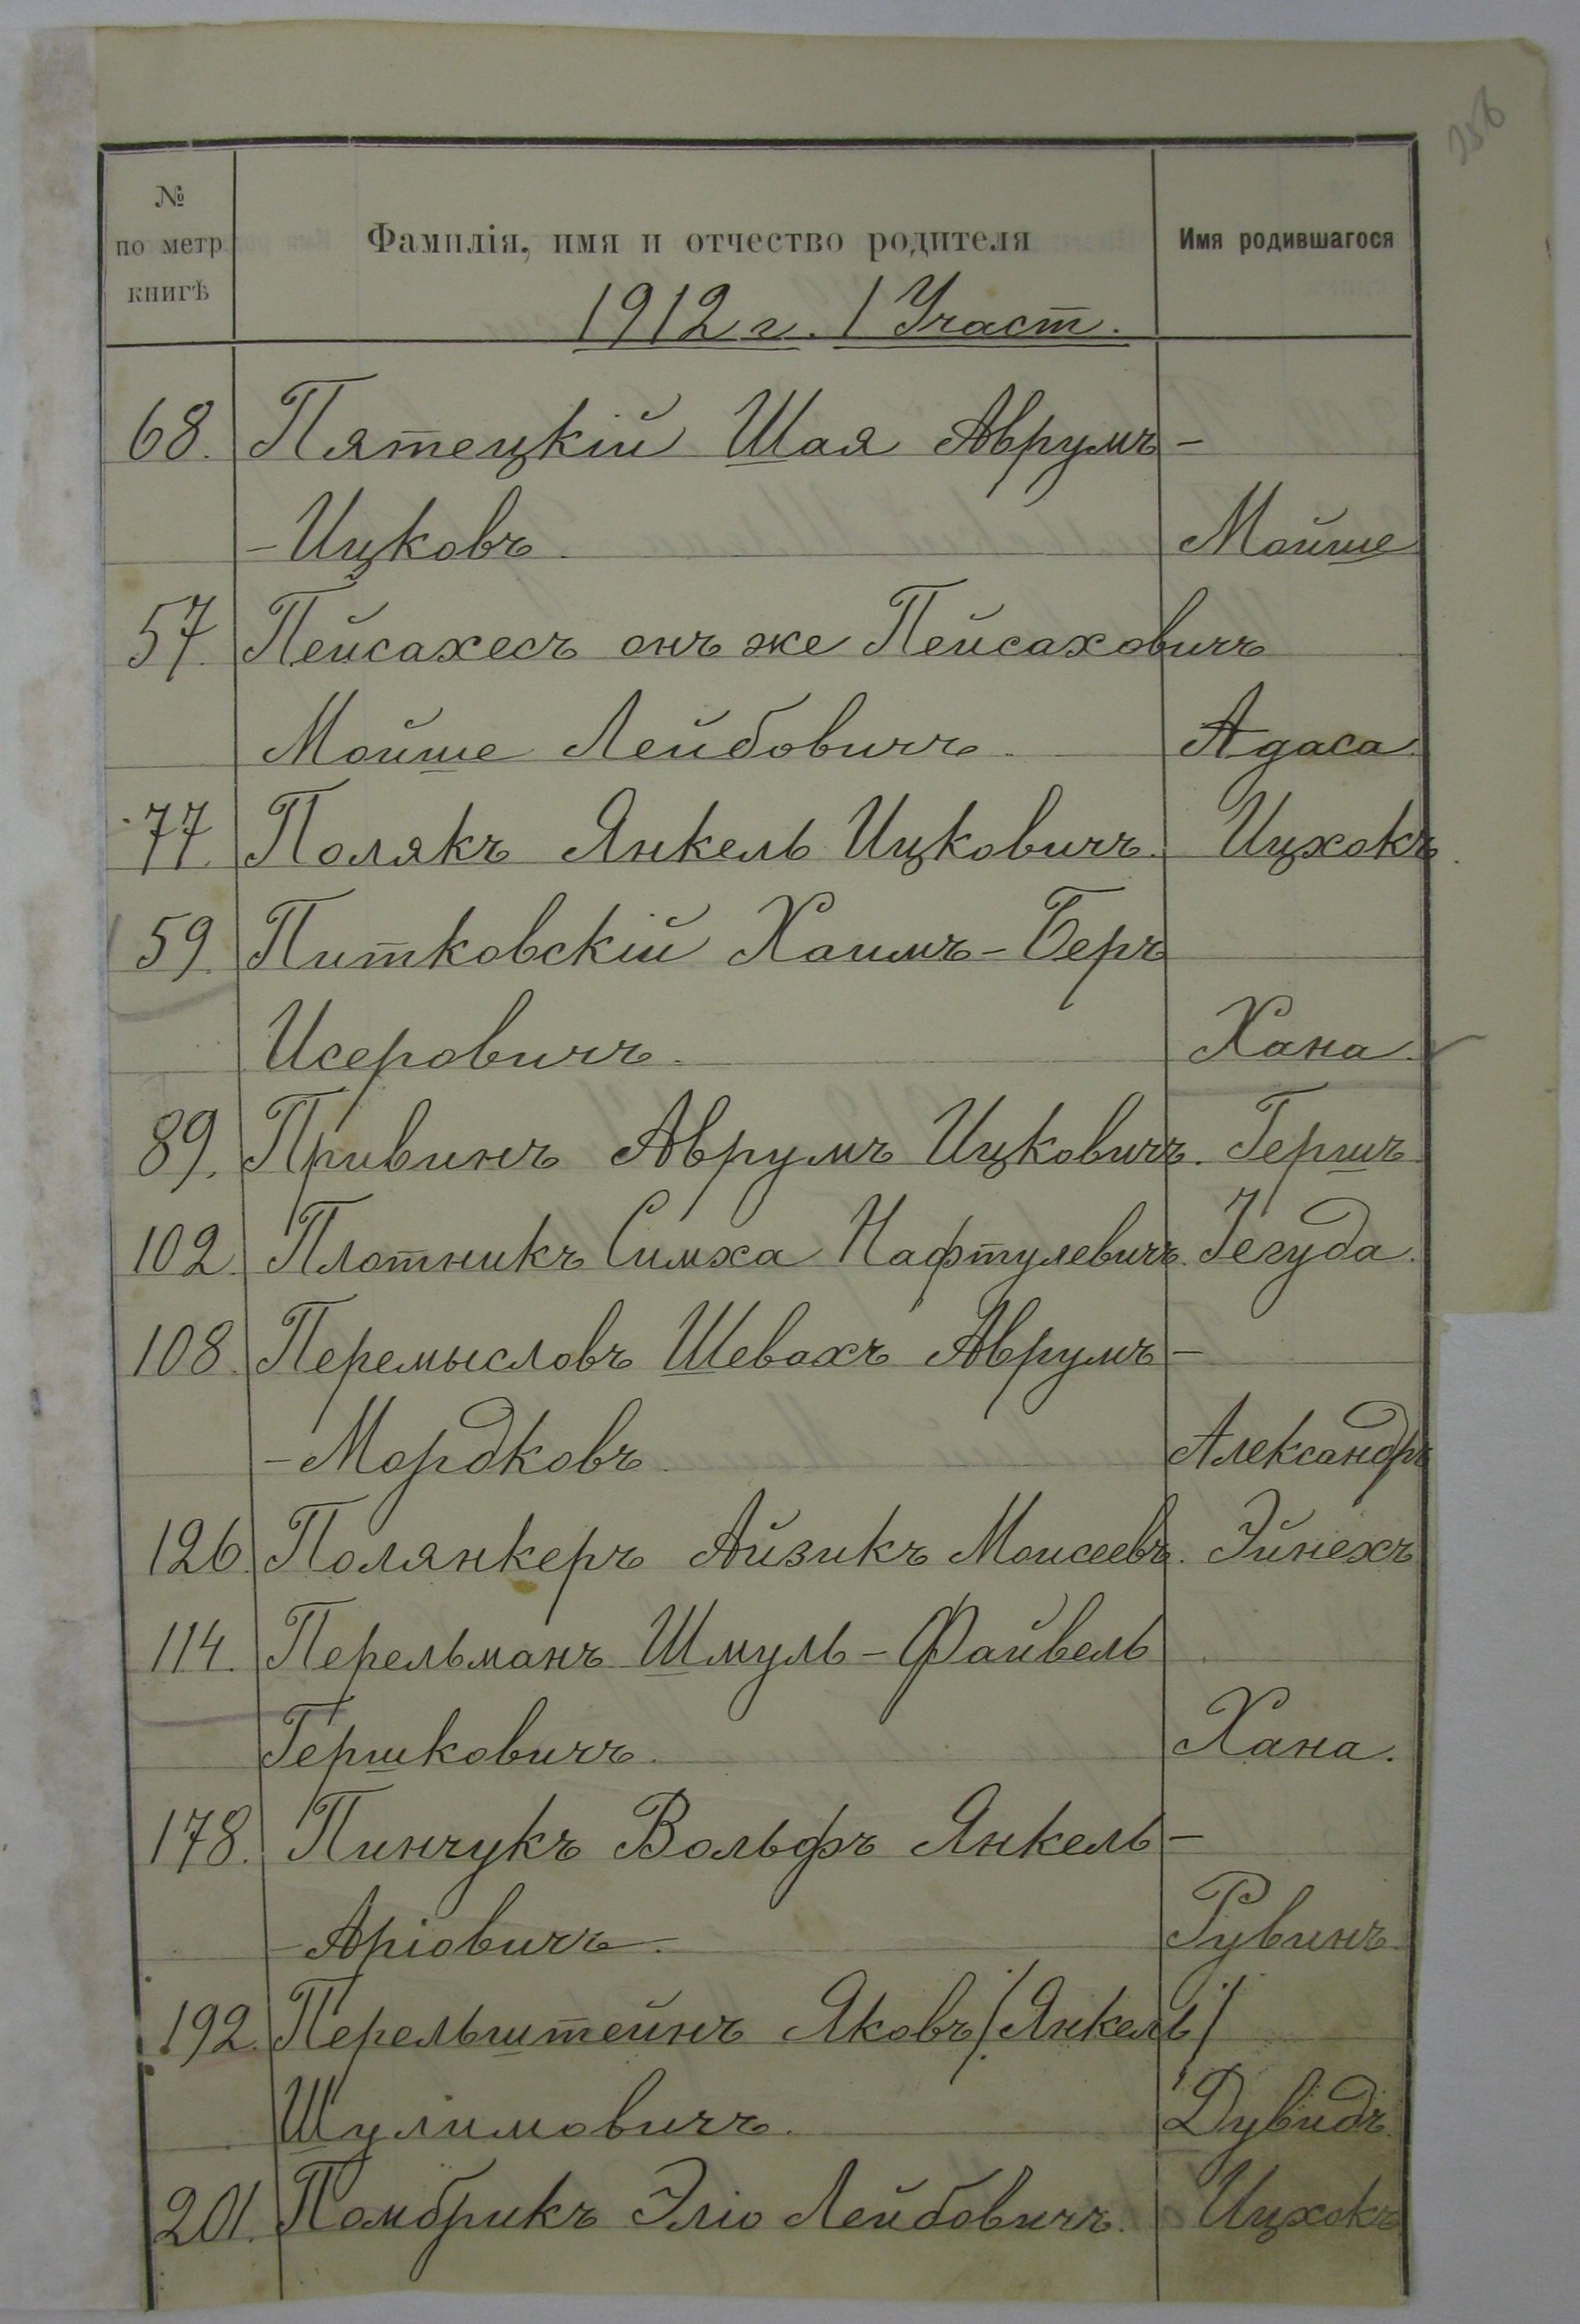 256
№
по метр.
книгѣ
Фамилія, имя и отчество родителя
Имя родившагося
1912 г. 1 Участ.
68. Пятецкій Шая Аврумъ-
-Ицковъ. Мойше
57. Пейсахесъ онъ же Пейсаховичъ
Мойше Лейбовичъ. Адаса.
77. Полякъ Янкель Ицковичъ. Ицхокъ.
59. Питковскій Хаимъ-Беръ
Исеровичъ. Хана.
89. Привинъ Аврумъ Ицковичъ. Гершъ.
102. Плотникъ Симха Нафтулевичъ. Іегуда.
108. Перемысловъ Шевахъ Аврумъ-
-Мордковъ. Александръ
126. Полянкеръ Айзикъ Моисеевъ. Эйнехъ
114. Перельманъ Шмуль-Файвель
Гершковичъ. Хана.
178. Пинчукъ Вольфъ Янкель-
-Аріовичъ. Рувинъ.
192. Перельштейнъ Яковъ /Янкель/
Шулимовичъ. Дувидъ.
201. Помбрикъ Эліо Лейбовичъ. Ицхокъ